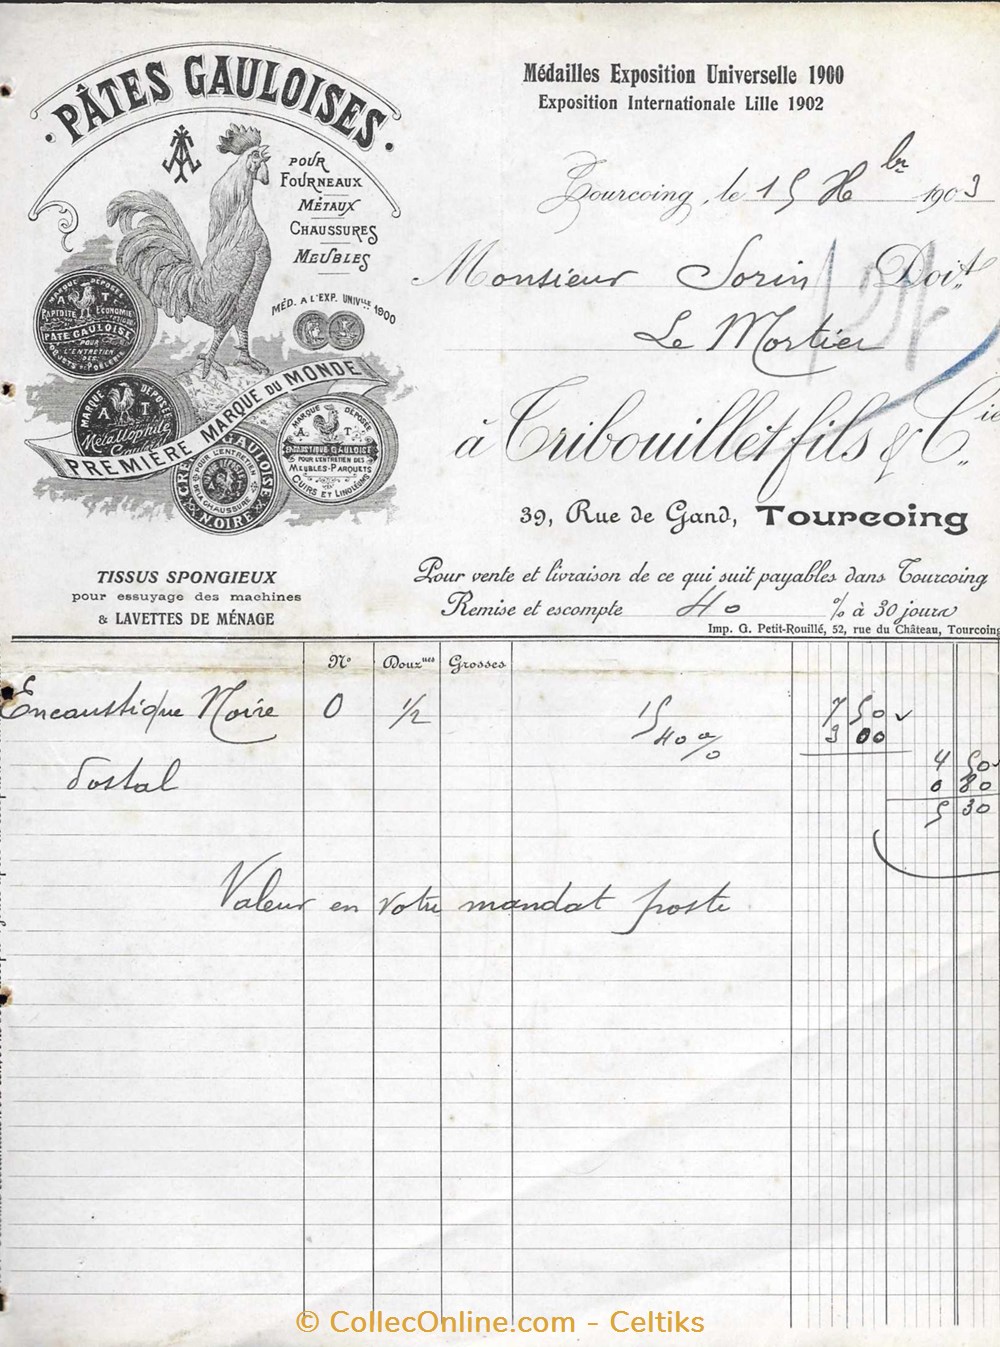 · PÂTES GAULOISES ·
AT
POUR
FOURNEAUX
MÉTAUX
CHAUSSURES
MEUBLES
MÉD. A L'EXP. UNIV^lle 1900
MARQUE DÉPOSÉE
A T
RAPIDITÉ ÉCONOMIE
PÂTE GAULOISE
POUR
L'ENTRETIEN
DES
OBJETS DE POËLERIE
MARQUE DÉPOSÉE
A T
Métallophile
PREMIÈRE MARQUE DU MONDE
GAULOISE
POUR L'ENTRETIEN
DE LA CHAUSSURE
NOIRE
MARQUE DÉPOSÉE
A T
ENCAUSTIQUE GAULOISE
POUR L'ENTRETIEN DES
MEUBLES-PARQUETS
CUIRS ET LINOLEUMS
TISSUS SPONGIEUX
pour essuyage des machines
& LAVETTES DE MÉNAGE
Médailles Exposition Universelle 1900
Exposition Internationale Lille 1902
Tourcoing, le 15 X^br 1903
Monsieur Sorin Doit
Le Mortier
à Tribouillet fils & C^ie
39, Rue de Gand, Tourcoing
Pour vente et livraison de ce qui suit payables dans Tourcoing
Remise et escompte 40 % à 30 jours
Imp. G. Petit-Rouillé, 52, rue du Château, Tourcoing
N° Douz^nes Grosses
Encaustique Noire 0 1/2 15 7 50
40 % 3 00
4 50
Postal 0 80
5 30
Valeur en votre mandat poste
© CollecOnline.com - Celtiks